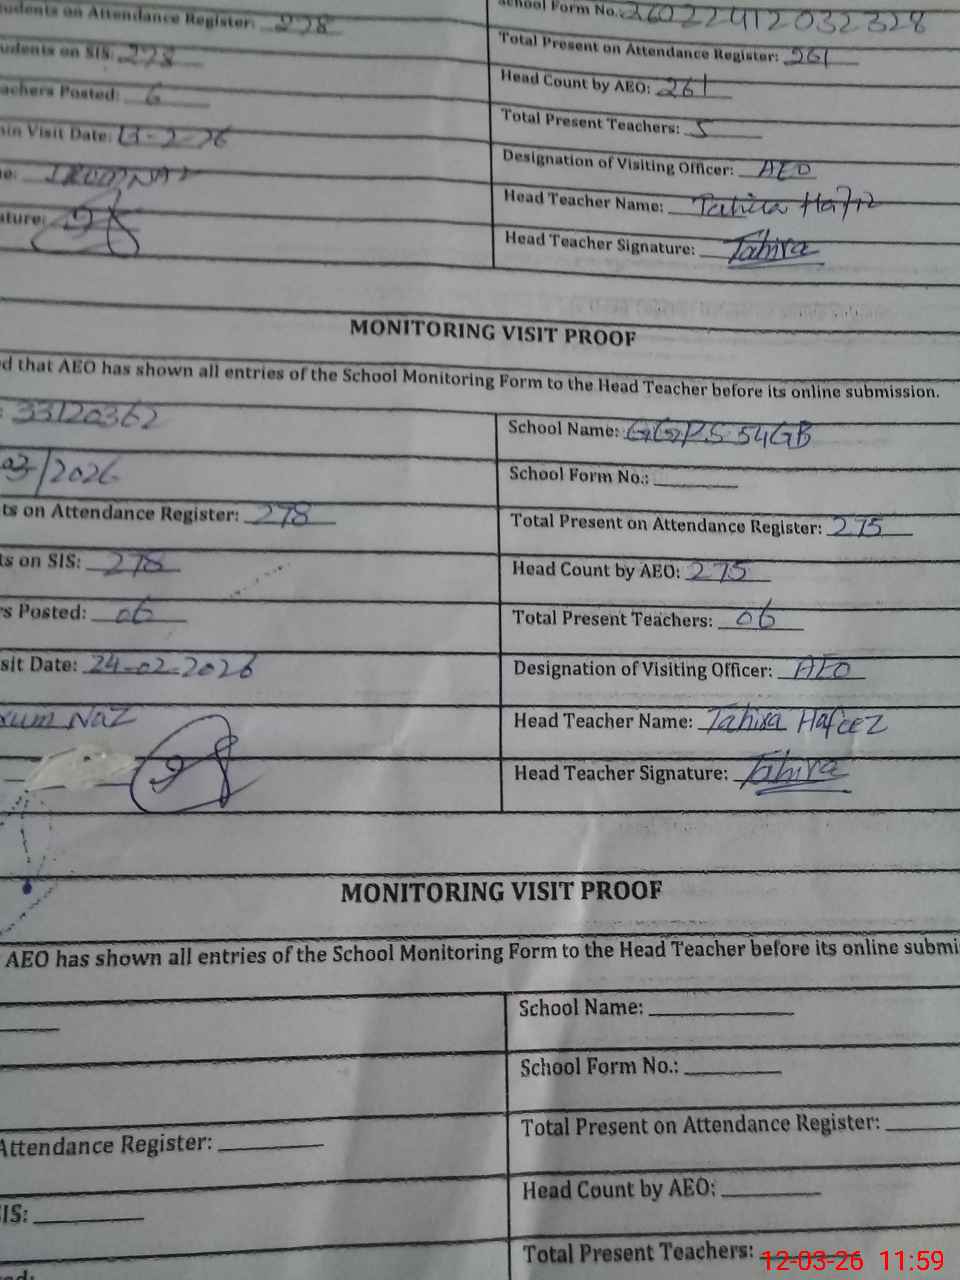 udents on Attendance Register: 278
School Form No.: 26022412032328
udents on SIS: 278
Total Present on Attendance Register: 261
achers Posted: 6
Head Count by AEO: 261
Visit Date: 13-2-26
Total Present Teachers: 5
Designation of Visiting Officer: AEO
Head Teacher Name: Tahira
ature:
Head Teacher Signature: Tahira
MONITORING VISIT PROOF
d that AEO has shown all entries of the School Monitoring Form to the Head Teacher before its online submission.
: 33120362
School Name: GGPS 54GB
03/2026
School Form No.:
ts on Attendance Register: 278
Total Present on Attendance Register: 275
ts on SIS: 278
Head Count by AEO: 275
rs Posted: 06
Total Present Teachers: 06
sit Date: 24-02-2026
Designation of Visiting Officer: AEO
xum Naz
Head Teacher Name: Tahira Hafeez
Head Teacher Signature: Tahira
MONITORING VISIT PROOF
AEO has shown all entries of the School Monitoring Form to the Head Teacher before its online submi
School Name:
School Form No.:
Attendance Register:
Total Present on Attendance Register:
IS:
Head Count by AEO:
Total Present Teachers:
12-03-26 11:59